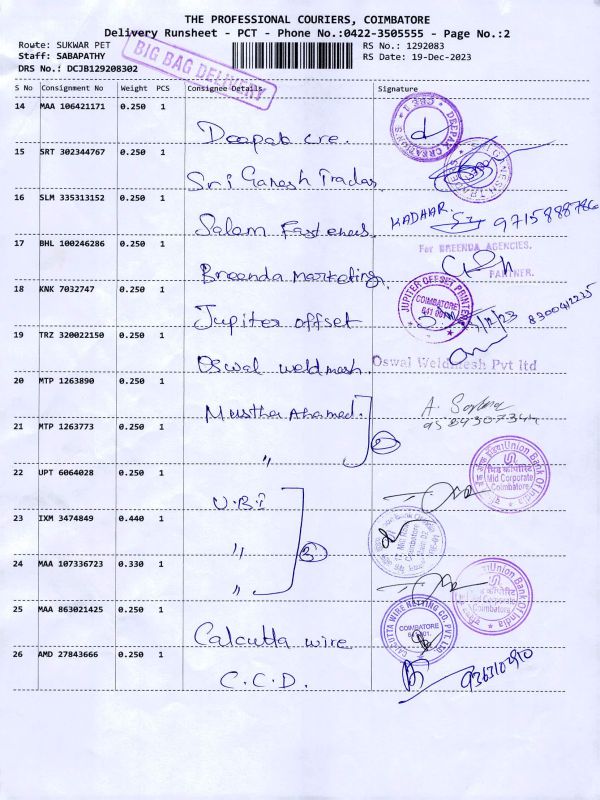 THE PROFESSIONAL COURIERS, COIMBATORE
Delivery Runsheet - PCT - Phone No.:0422-3505555 - Page No.:2
Route: SUKWAR PET
RS No.: 1292083
Staff: SABAPATHY
RS Date: 19-Dec-2023
DRS No.: DCJB129208302
BIG BAG DELIVERY
S No Consignment No Weight PCS Consignee Details Signature
14 MAA 106421171 0.250 1
Deepak cre.
15 SRT 302344767 0.250 1
Sri Ganesh Tradas
16 SLM 335313152 0.250 1
KADHAR
Salem Fasteners
17 BHL 100246286 0.250 1
For BREENDA AGENCIES.
Breenda Marketing
PARTNER.
18 KNK 7032747 0.250 1
JUPITER OFFSET PRINTERS
COIMBATORE
641 001
Jupiter offset
8300412225
19 TRZ 320022150 0.250 1
Oswal weldmesh
Oswal Weldmesh Pvt ltd
20 MTP 1263890 0.250 1
Mustha Ahamed.
21 MTP 1263773 0.250 1
2
"
22 UPT 6064028 0.250 1
Union Bank Of India
Mid Corporate
Coimbatore
U.B.I
23 IXM 3474849 0.440 1
"
3
24 MAA 107336723 0.330 1
Union Bank Of India
Mid Corporate
Coimbatore
"
25 MAA 863021425 0.250 1
CALCUTTA WIRE NETTING CO. PVT. LTD.
COIMBATORE
Calcutta wire
26 AMD 27843666 0.250 1
C.C.D.